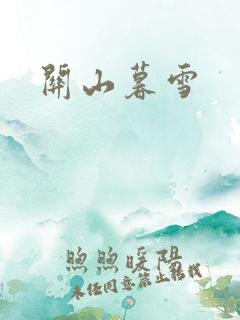 關山暮雪
煦煦暖陽
未经同意禁止转载